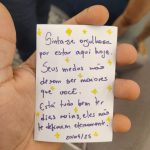 Sinta-se orgulhosa
por estar aqui hoje.
Seus medos não
devem ser maiores
que você.
Está tudo bem ter
dias ruins, eles não
te definem eternamente.